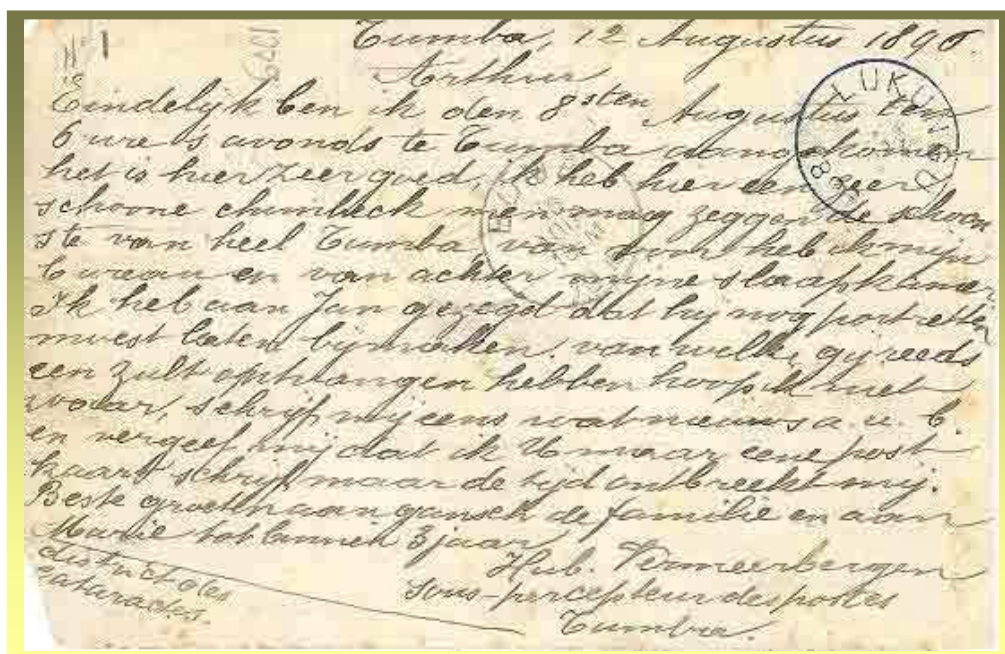 N° 1
1379
Tumba, 12 Augustus 1898.
Arthur
Eindelijk ben ik den 8sten Augustus ten
6 ure s'avonds te Tumba aangekomen
het is hier zeer goed, ik heb hier een zeer
schoone chimbeck men mag zeggen de schoon
ste van heel Tumba, van voor heb ik mijn
bureau en van achter mijne slaapkamer
Ik heb aan Jan gezegd dat hij nog portretten
moest laten bijmaken. van welke gij reeds
een zult ontvangen hebben hoop ik niet
waar, schrijf mij eens wat nieuws a. u. b.
en vergeef mij dat ik U maar eene post
kaart schrijf maar de tijd ontbreekt mij.
Beste groeten aan gansch de familie en aan
Marie tot binnen 3 jaar
Hub. Vermeerbergen
sous-percepteur des postes
Tumba.
district des
cataractes.